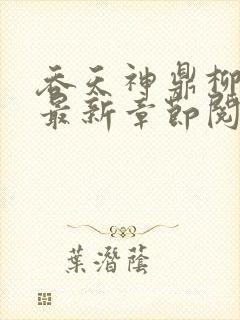 吞天神鼎柳
最新章节阅
葉潛蔭